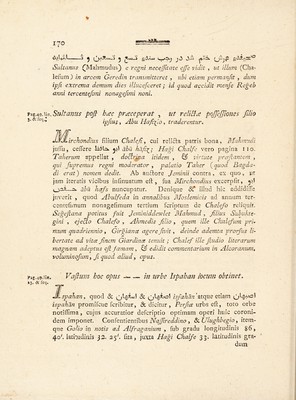 170
Sultanus (Mahmudus) e regni necessitate esse vidit, ut illum (Cha-
lefum) in arcem Gerodin transmitteret, ubi etiam permansit, dum
ipsi extrema demum dies illucesceret; id quod accidit mense Regeb
anni tercentesimi nonagesimi noni.
Sultanus post hæc præceperat, ut relictæ possessiones filio
ipsius, Abu Hafizia, traderentur.
Mirchondius filium Chalefi, cui relicta pareis bona, Mahmudi
jussu, cessere ابو حفص abu hafs; Hagi Chalfe vero pagina 110.
Taherum appellat, doctrina itidem, & virtute præstantem,
qui supremus regni moderator, palatio Taher (quod Bagda-
di erat) nomen dedit. Ab auctore Jemini contra, ex quo, ut
jam iteratis vicibus insinuatum est, sua Mirchondius excerpsit,
abu hafs nuncupatur. Denique & illud hic addidisse
juverit, quod Abulfeda in annalibus Moslemicis ad annum ter-
centesimum nonagesimum tertium scripsit de Chalefo reliquit.
Segestana potitus fuit Jeminiddewlet Mahmud, filius Subukte-
gini, ejecto Chalefo, Ahmedis filio, quem ille Chalefum pri-
mum quadriennio, Girgiane agere sivit, deinde ademta prorsus li-
bertate ad vitæ finem Giardine tenuit; Chalef ille studio literarum
magnam adeptus est famam, & edidit commentarium in Alcoranum,
voluminosum, si quod aliud, opus.
Vastum hoc opus — — in urbe Ispahan locum obtinet.
Ispahan, quod & اصفهان & اصبهان isfahân atque etiam
pronuncias & scribitur, & dicitur, Persiæ urbs est, toto orbe
notissima, cujus accuratior descriptio optimam operi huic coroni-
dem imponet. Consentientibus Nassireddino, & Ulughbegio, item-
que Golio in notis ad Alfraganium, sub gradu longitudinis 86,
40'. latitudinis 32. 25'. sita, juxta Hagi Chalfe 33. latitudinis gra-
dum